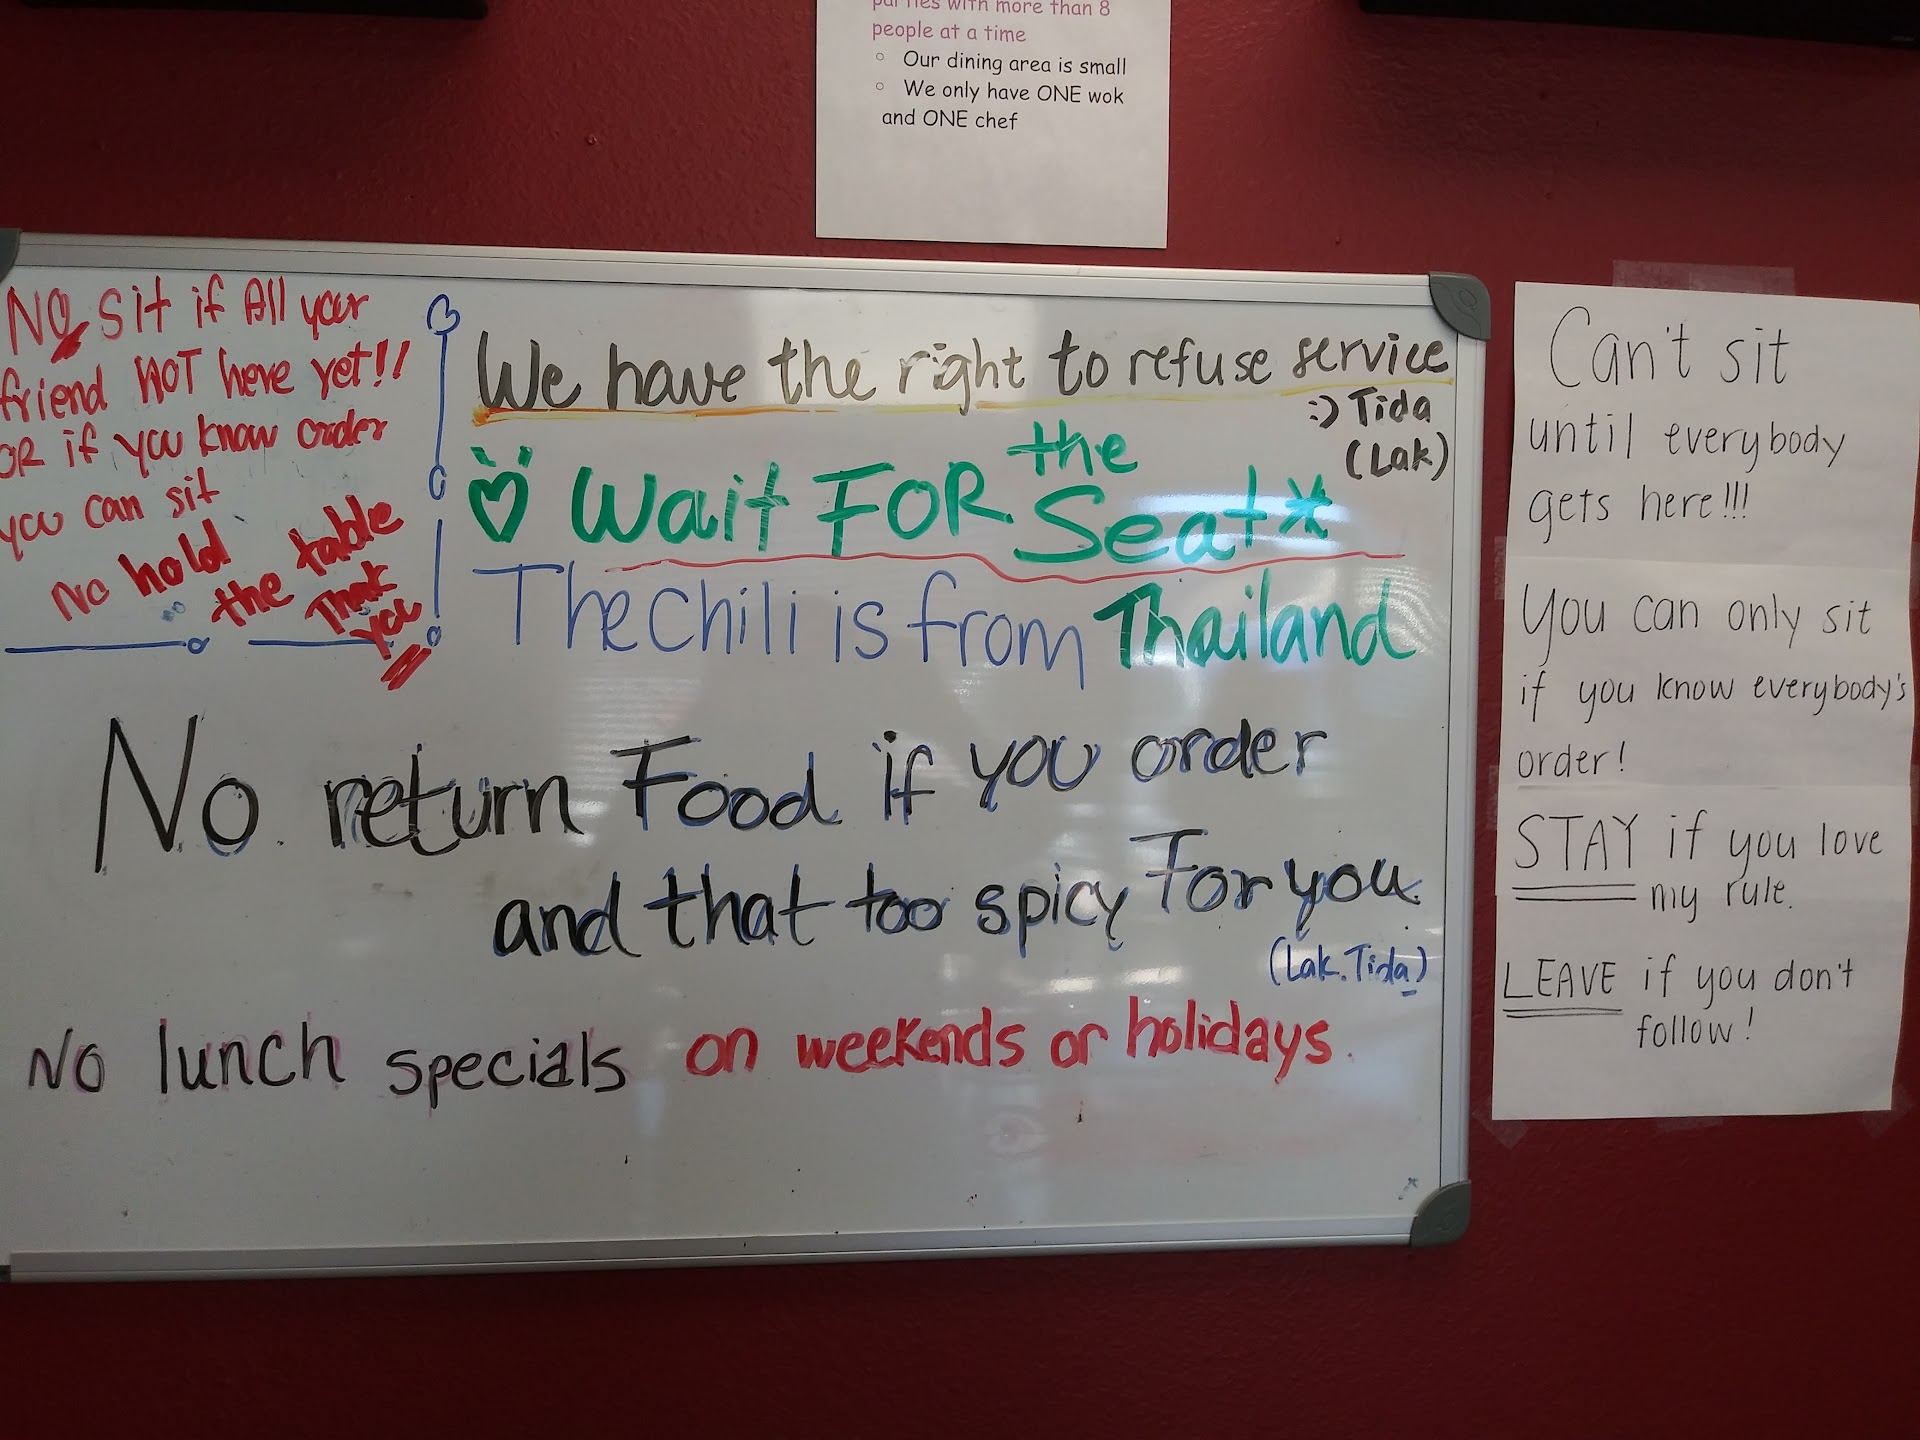 parties with more than 8
people at a time
○ Our dining area is small
○ We only have ONE wok
and ONE chef
NO sit if All your
friend NOT here yet!!
OR if you know order
you can sit
No hold
the table
Thank
you
We have the right to refuse service
:) Tida
(Lak)
Wait FOR the
Seat*
The chili is from Thailand
No. return Food if you order
and that too spicy For you.
(Lak.Tida)
No lunch specials on weekends or holidays.
Can't sit
until everybody
gets here!!!
You can only sit
if you know everybody's
order!
STAY if you love
my rule.
LEAVE if you don't
follow!